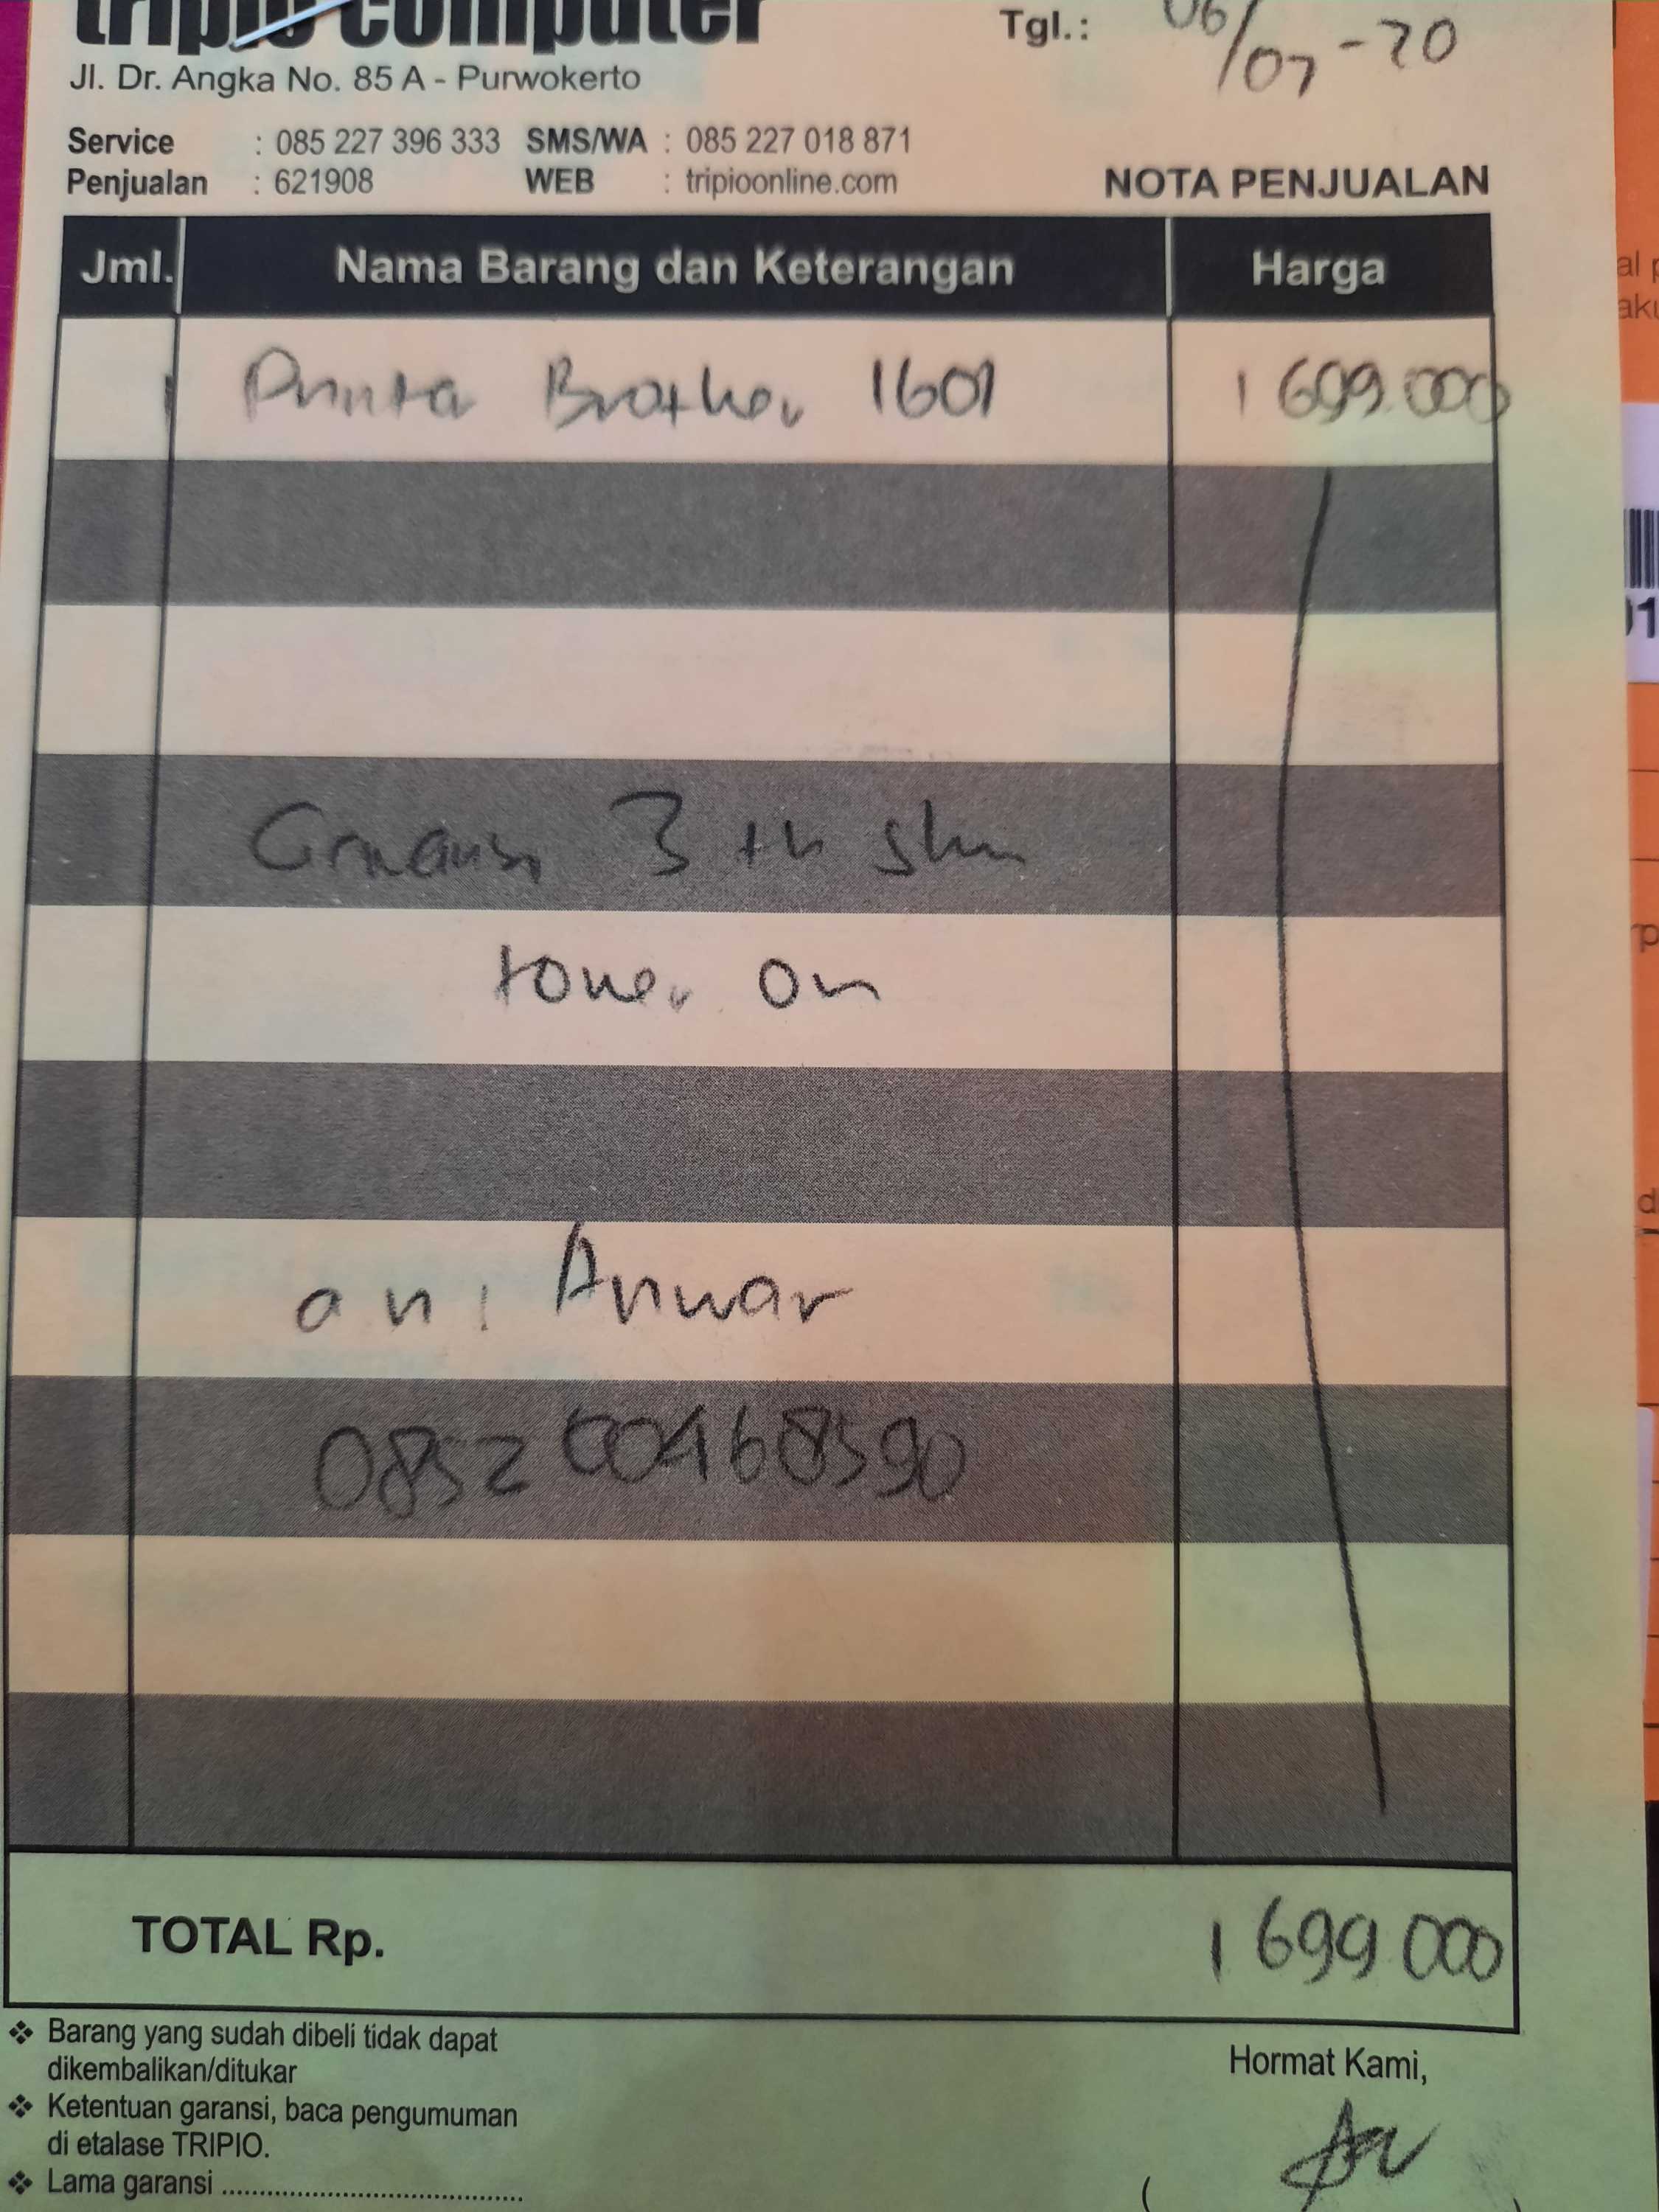 tripio computer
Tgl.: 06/07-20
Jl. Dr. Angka No. 85 A - Purwokerto
Service : 085 227 396 333 SMS/WA : 085 227 018 871
Penjualan : 621908 WEB : tripioonline.com
NOTA PENJUALAN
Jml. Nama Barang dan Keterangan Harga
1 Printer Brother 1601 1 699.000
Garansi 3 th
toner on
an : Anwar
TOTAL Rp. 1 699 000
❖ Barang yang sudah dibeli tidak dapat
dikembalikan/ditukar
❖ Ketentuan garansi, baca pengumuman
di etalase TRIPIO.
❖ Lama garansi ........................................
Hormat Kami,
(